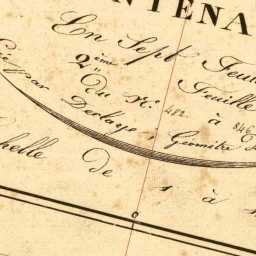 NTENA
En Sept Feuil
2ème Feuille
Du N.° 482 à 846
par Deslage, Géomètre
chelle de 1 à